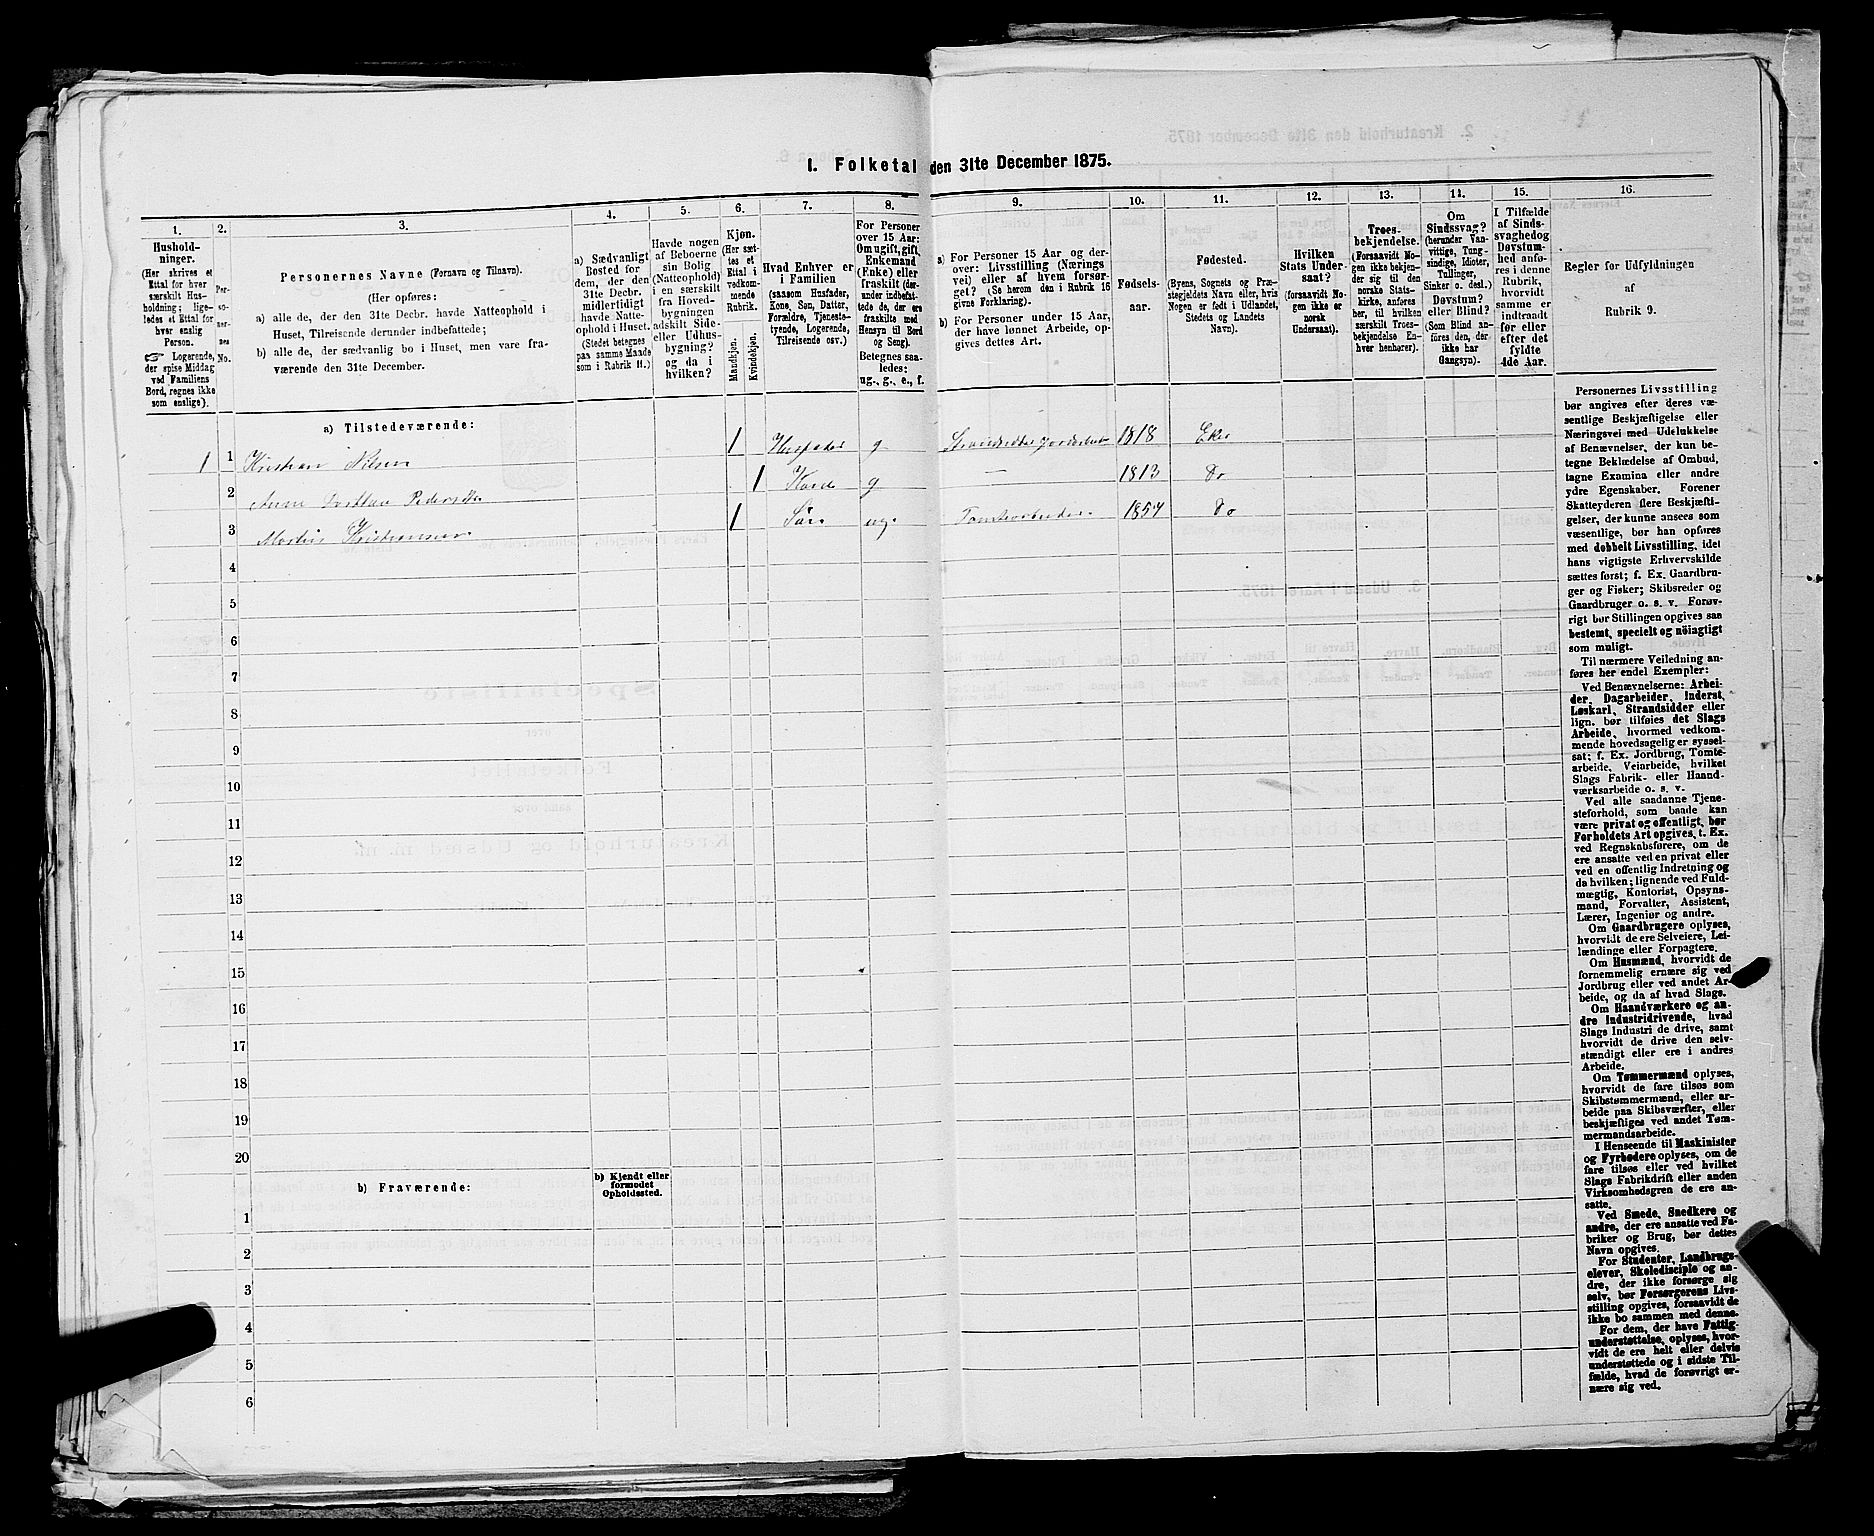 I. Folketal den 31te December 1875.
1.
Hushold-
ninger.
(Her skrives et
Ettal for hver
særskilt Hus-
holdning; lige-
ledes et Ettal for
hver enslig
Person.
☞ Logerende,
der spise Middag
ved Familiens
Bord, regnes ikke
som enslige).
2.
Per-
so-
ner-
nes
No.
3.
Personernes Navne (Fornavn og Tilnavn).
(Her opføres:
a) alle de, der den 31te Decbr. havde Natteophold i
Huset, Tilreisende derunder indbefattede;
b) alle de, der sædvanlig bo i Huset, men vare fra-
værende den 31te December.
4.
a) Sædvanligt
Bosted for
dem, der den
31te Decbr.
midlertidigt
havde Natte-
ophold i Huset.
(Stedet betegnes
paa samme Maade
som i Rubrik 11.)
5.
Havde nogen
af Beboerne
sin Bolig
(Natteophold)
i en særskilt
fra Hoved-
bygningen
adskilt Side-
eller Udhus-
bygning?
og da i
hvilken?
6.
Kjøn.
(Her sæt-
tes et
Ettal i
vedkom-
mende
Rubrik.
Mandkjøn.
Kvindekjøn.
7.
Hvad Enhver er
i Familien
(saasom Husfader,
Kone, Søn, Datter,
Forældre, Tjeneste-
tyende, Logerende,
Tilreisende osv.)
8.
For Personer
over 15 Aar:
Om ugift, gift,
Enkemand
(Enke) eller
fraskilt (der-
under indbefat-
tede de, der ere
fraskilte med
Hensyn til Bord
og Seng).
Betegnes saa-
ledes:
ug., g., e., f.
9.
a) For Personer 15 Aar og der-
over: Livsstilling (Nærings
vei) eller af hvem forsør-
get? (Se herom den i Rubrik 16
givne Forklaring).
b) For Personer under 15 Aar,
der have lønnet Arbeide, op-
gives dettes Art.
10.
Fødsels-
aar.
11.
Fødested.
(Byens, Sognets og Præ-
stegjeldets Navn eller, hvis
Nogen er født i Udlandet,
Stedets og Landets
Navn).
12.
Hvilken
Stats Under-
saat?
(forsaavidt No-
gen ikke er
norsk
Undersaat).
13.
Troes-
bekjendelse.
(Forsaavidt No-
gen ikke bekjen-
der sig til den
norske Stats-
kirke, anføres
her, til hvilken
særskilt Troes-
bekjendelse En-
hver henhører).
14.
Om
Sindssvag?
(herunder Van-
vittige, Tung-
sindige, Idioter,
Tullinger,
Sinker o. desl.)
Døvstum?
eller Blind?
(Som Blind an-
føres den, der
ikke har
Gangsyn).
15.
I Tilfælde
af Sinds-
svaghed og
Døvstum-
hed anfø-
res i denne
Rubrik,
hvorvidt
samme er
indtraadt
før eller
efter det
fyldte
4de Aar.
16.
Regler for Udfyldningen
af
Rubrik 9.
a) Tilstedeværende:
1 1 Kristian Nilsen 1 Husfader g 1818 Eker
2 Anne Pedersdtr 1 Kone g — 1813 Do
3 Martin Kristiansen 1 Søn ug. Tomtearbeider 1854 Do
4
5
6
7
8
9
10
11
12
13
14
15
16
17
18
19
20
b) Fraværende:
b) Kjendt eller
formodet
Opholdssted.
1
2
3
4
5
6
Personernes Livsstilling
bør angives efter deres væ-
sentlige Beskjæftigelse eller
Næringsvei med Udelukkelse
af Benævnelser, der kun be-
tegne Beklædelse af Ombud,
tagne Examina eller andre
ydre Egenskaber. Forener
Skatteyderen flere Beskjæfti-
gelser, der kunne ansees som
væsentlige, bør han opføres
med dobbelt Livsstilling, idet
hans vigtigste Erhvervskilde
sættes først; f. Ex. Gaardbru-
ger og Fisker; Skibsreder og
Gaardbruger o. s. v. Forøv-
rigt bør Stillingen opgives saa
bestemt, specielt og nøiagtigt
som muligt.
Til nærmere Veiledning an-
føres her endel Exempler:
Ved Benævnelserne: Arbei-
der, Dagarbeider, Inderst,
Løskarl, Strandsidder eller
lign. bør tilføies det Slags
Arbeide, hvormed vedkom-
mende hovedsagelig er syssel-
sat; f. Ex. Jordbrug, Tomte-
arbeide, Veiarbeide, hvilket
Slags Fabrik- eller Haand-
værksarbeide o. s. v.
Ved alle saadanne Tjene-
steforhold, som baade kan
være privat og offentligt, bør
Forholdets Art opgives, t. Ex.
ved Regnskabsførere, om de
ere ansatte ved en privat eller
ved en offentlig Indretning og
da hvilken; lignende ved Fuld-
mægtig, Kontorist, Opsyns-
mand, Forvalter, Assistent,
Lærer, Ingeniør og andre.
Om Gaardbrugere oplyses,
hvorvidt de ere Selveiere, Lei-
lændinge eller Forpagtere.
Om Husmænd, hvorvidt de
fornemmelig ernære sig ved
Jordbrug eller ved andet Ar-
beide, og da af hvad Slags.
Om Haandværkere og an-
dre Industridrivende, hvad
Slags Industri de drive, samt
hvorvidt de drive den selv-
stændigt eller ere i andres
Arbeide.
Om Tømmermænd oplyses,
hvorvidt de fare tilsøs som
Skibstømmermænd, eller ar-
beide paa Skibsværfter, eller
beskjæftiges ved andet Tøm-
mermandsarbeide.
I Henseende til Maskinister
og Fyrbødere oplyses, om de
fare tilsøs eller ved hvilket
Slags Fabrikdrift eller anden
Virksomhedsgren de ere an-
satte.
Ved Smede, Snedkere og
andre, der ere ansatte ved Fa-
briker og Brug, bør dettes
Navn opgives.
For Studenter, Landbrugs-
elever, Skoledisciple og an-
dre, der ikke forsørge sig
selv, bør Forsørgerens Livs-
stilling opgives, forsaavidt de
ikke bo sammen med denne.
For dem, der have Fattig-
understøttelse, oplyses, hvor-
vidt de ere helt eller delvis
understøttede og i sidste Til-
fælde, hvad de forøvrigt er-
nære sig ved.